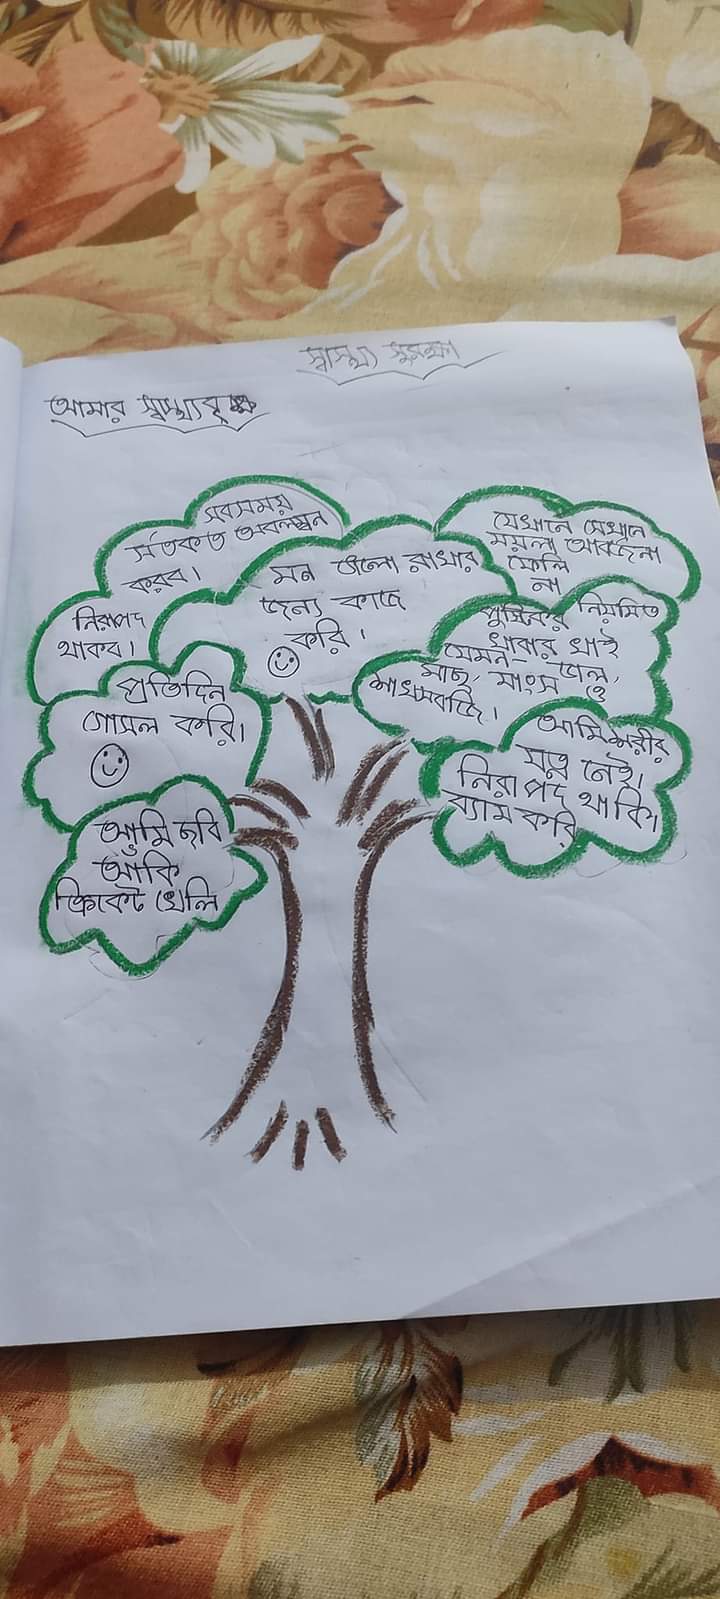 স্বাস্থ্য সুরক্ষা
আমার স্বাস্থ্যবৃক্ষ
সবসময়
র্সতকত অবলম্বন
করব।
নিরাপদ
থাকব।
মন ভালো রাখার
জন্য কাজ
করি।
যেখানে সেখানে
ময়লা আবর্জনা
ফেলি
না
নিয়মিত
পুষ্টিকর
খাবার খাই
যেমন- ডাল,
মাছ, মাংস ও
শাখসবজি।
প্রতিদিন
গোসল করি।
আমি শরীর
যত্ন নেই।
নিরাপদ থাকি।
ব্যাম করি
আমি ছবি
আঁকি
ক্রিকেট খেলি